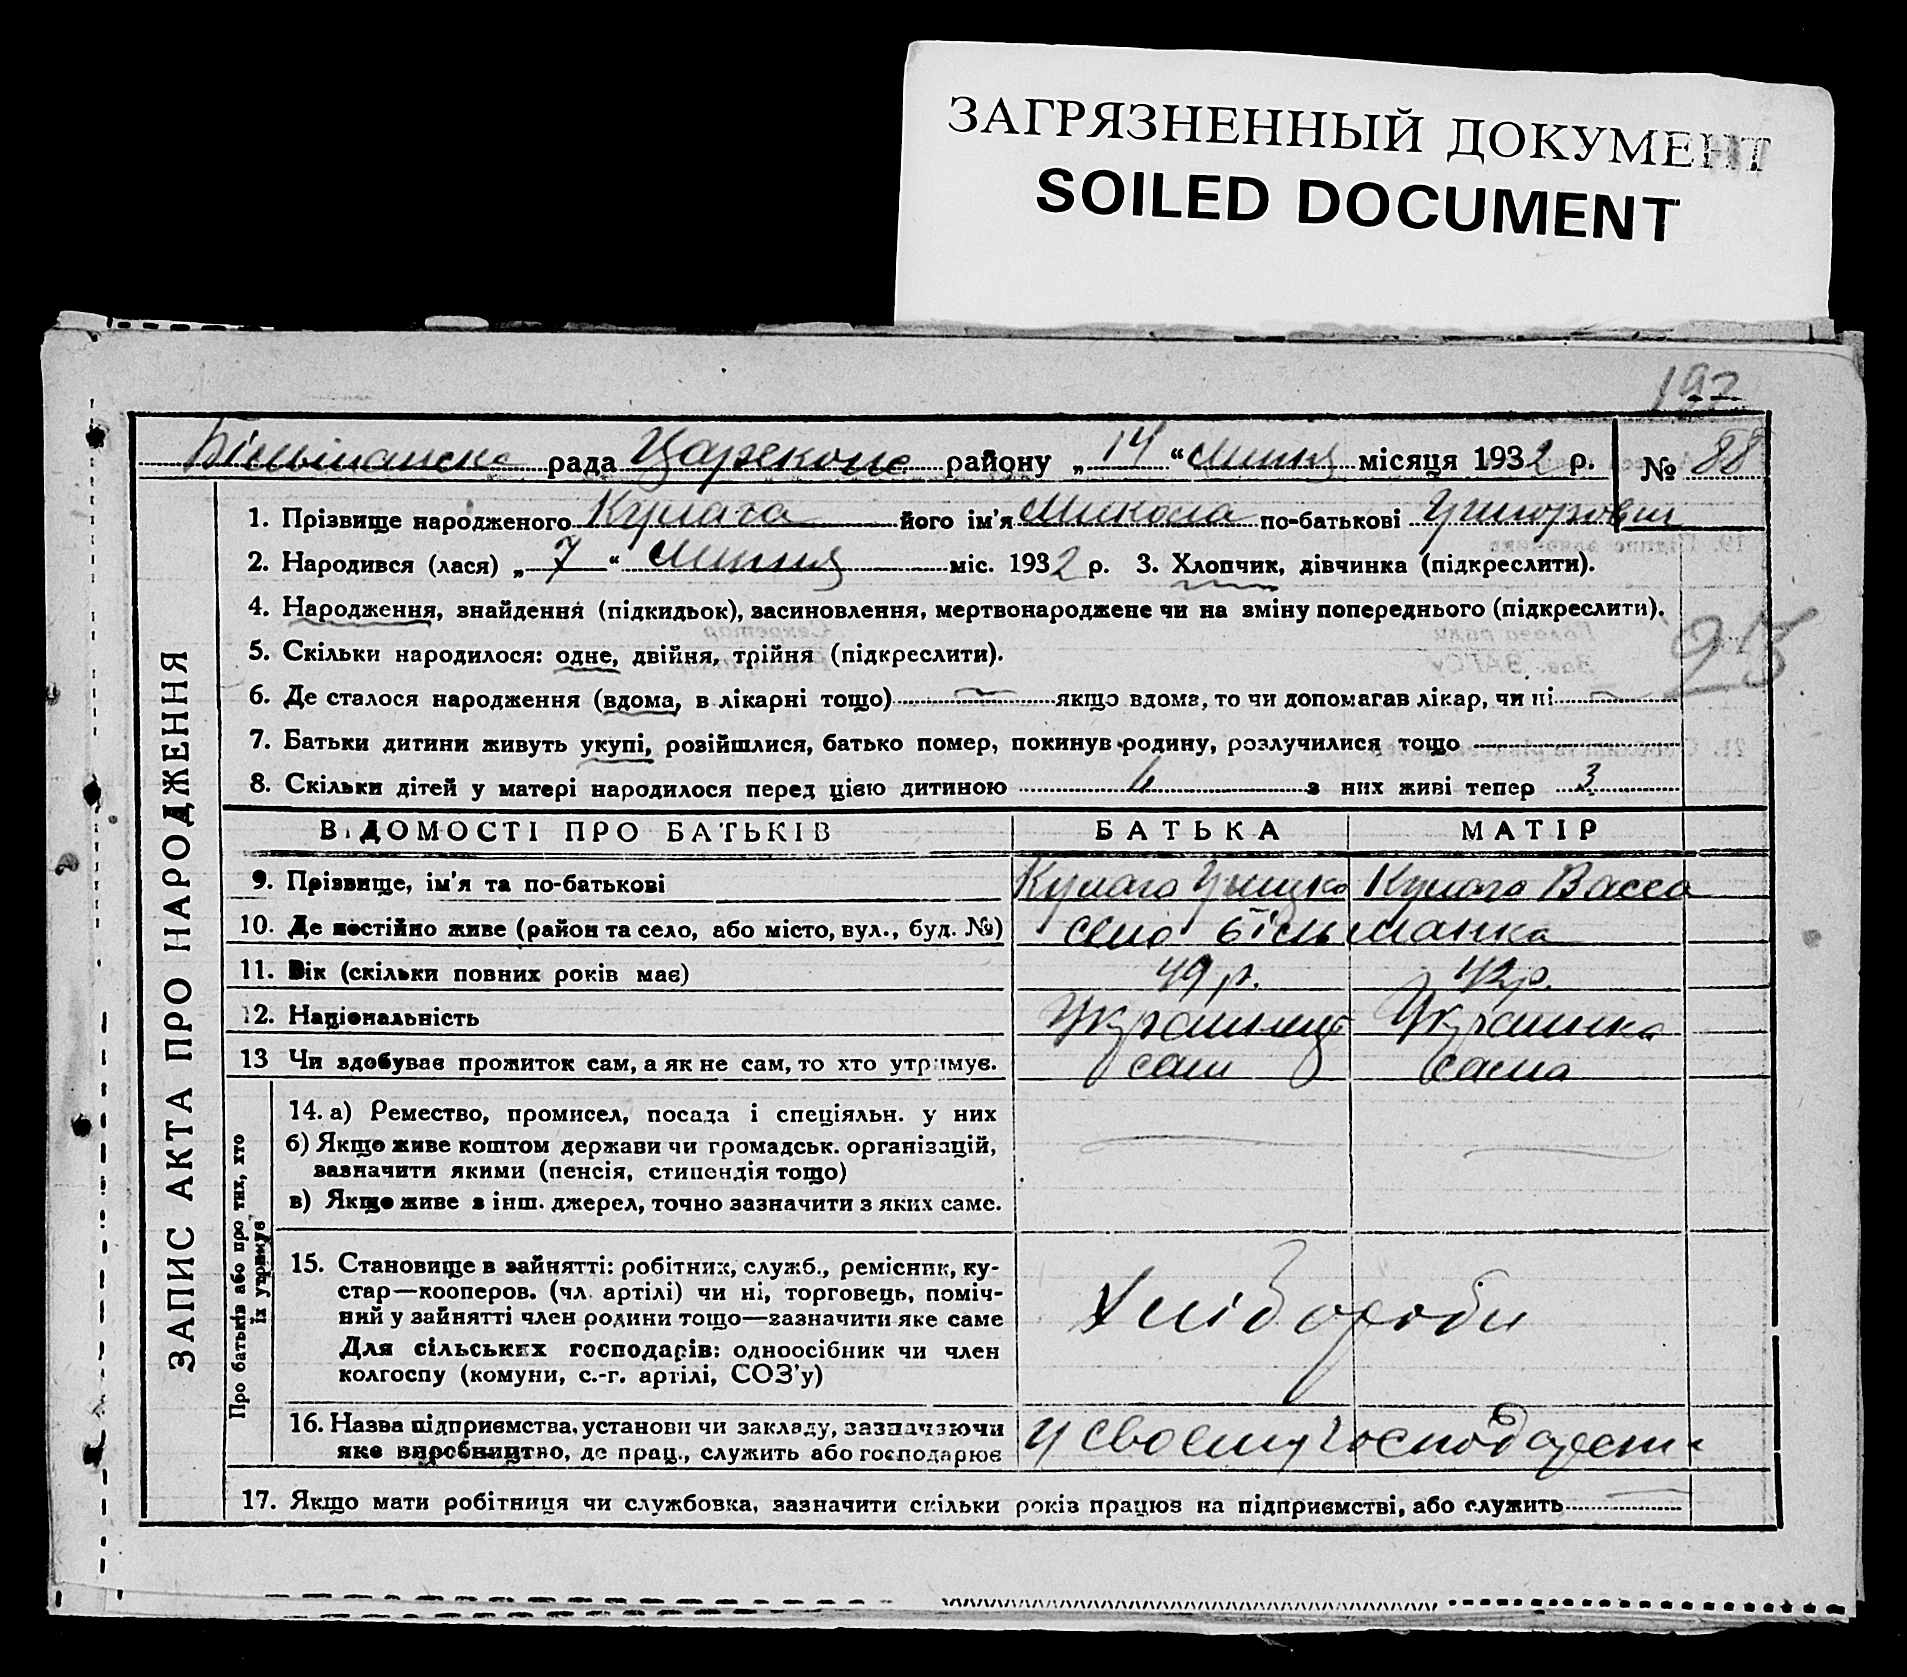 ЗАГРЯЗНЕННЫЙ ДОКУМЕНТ
SOILED DOCUMENT
192
Більманська рада Царекон району „14“ липня місяця 1932 р. № 88
1. Прізвище народженого Кулага його ім'я Микола по-батькові Григорович
2. Народився (лася) „7“ липня міс. 1932 р. 3. Хлопчик, дівчинка (підкреслити).
4. Народження, знайдення (підкидьок), засиновлення, мертвонароджене чи на зміну попереднього (підкреслити).
5. Скільки народилося: одне, двійня, трійня (підкреслити).
6. Де сталося народження (вдома, в лікарні тощо) — якщо вдома, то чи допомагав лікар, чи ні —
7. Батьки дитини живуть укупі, розійшлися, батько помер, покинув родину, розлучилися тощо
8. Скільки дітей у матері народилося перед цією дитиною 4 з них живі тепер 3
ВІДОМОСТІ ПРО БАТЬКІВ БАТЬКА МАТІР
9. Прізвище, ім'я та по-батькові Кулага Грицко Кулага Васса
10. Де постійно живе (район та село, або місто, вул., буд. №) село більманка
11. Вік (скільки повних років має) 49 р. 42 р.
12. Національність Українець Українка
13 Чи здобуває прожиток сам, а як не сам, то хто утримує. сам сама
ЗАПИС АКТА ПРО НАРОДЖЕННЯ
Про батьків або про тих, хто
їх утримує
14. а) Ремество, промисел, посада і спеціяльн. у них
б) Якщо живе коштом держави чи громадськ. організацій,
зазначити якими (пенсія, стипендія тощо)
в) Якщо живе з інш. джерел, точно зазначити з яких саме.
15. Становище в зайнятті: робітник, служб., ремісник, ку-
стар—кооперов. (чл. артілі) чи ні, торговець, поміч-
ний у зайнятті член родини тощо—зазначити яке саме
Для сільських господарів: одноосібник чи член
колгоспу (комуни, с.-г. артілі, СОЗ'у)
Хлібороби
16. Назва підприємства, установи чи закладу, зазначаючи
яке виробництво, де прац., служить або господарює
у своєму господарстві
17. Якщо мати робітниця чи службовка, зазначити скільки років працює на підприємстві, або служить —